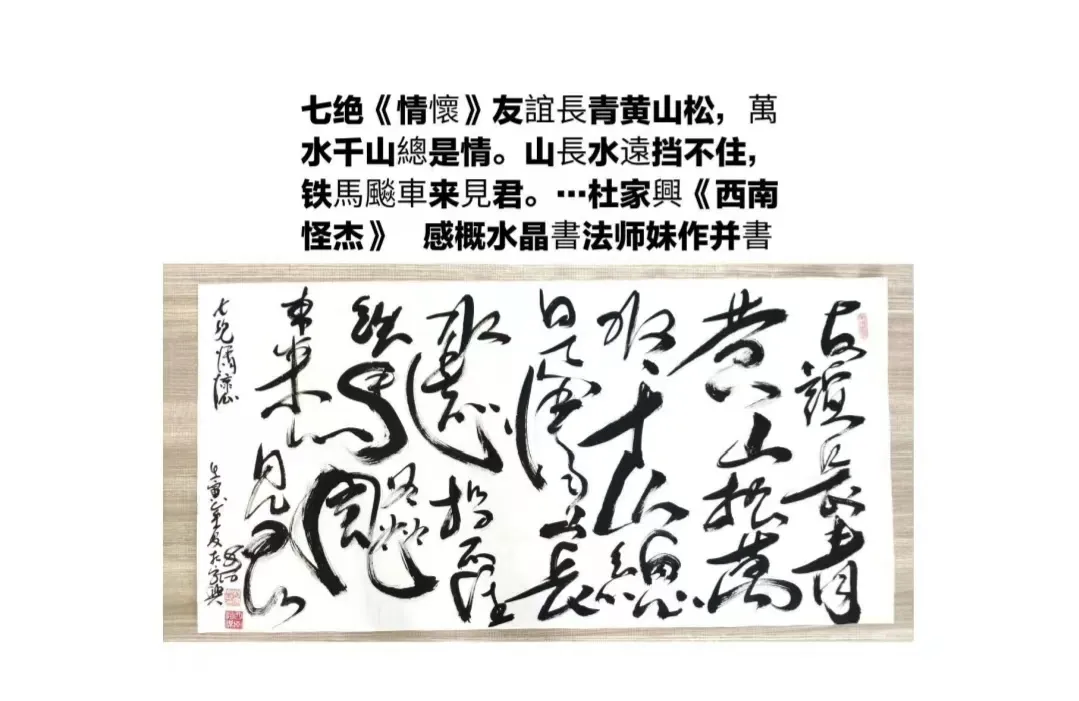 七绝《情懷》友誼長青黄山松，萬
水千山總是情。山長水遠挡不住，
铁馬飈車来見君。…杜家興《西南
怪杰》 感概水晶書法师妹作并書
友誼長青
黄山松萬
水千山總
是情山長
水遠挡不住
铁馬飈
車来見君
七绝情懷
壬寅年夏杜家興